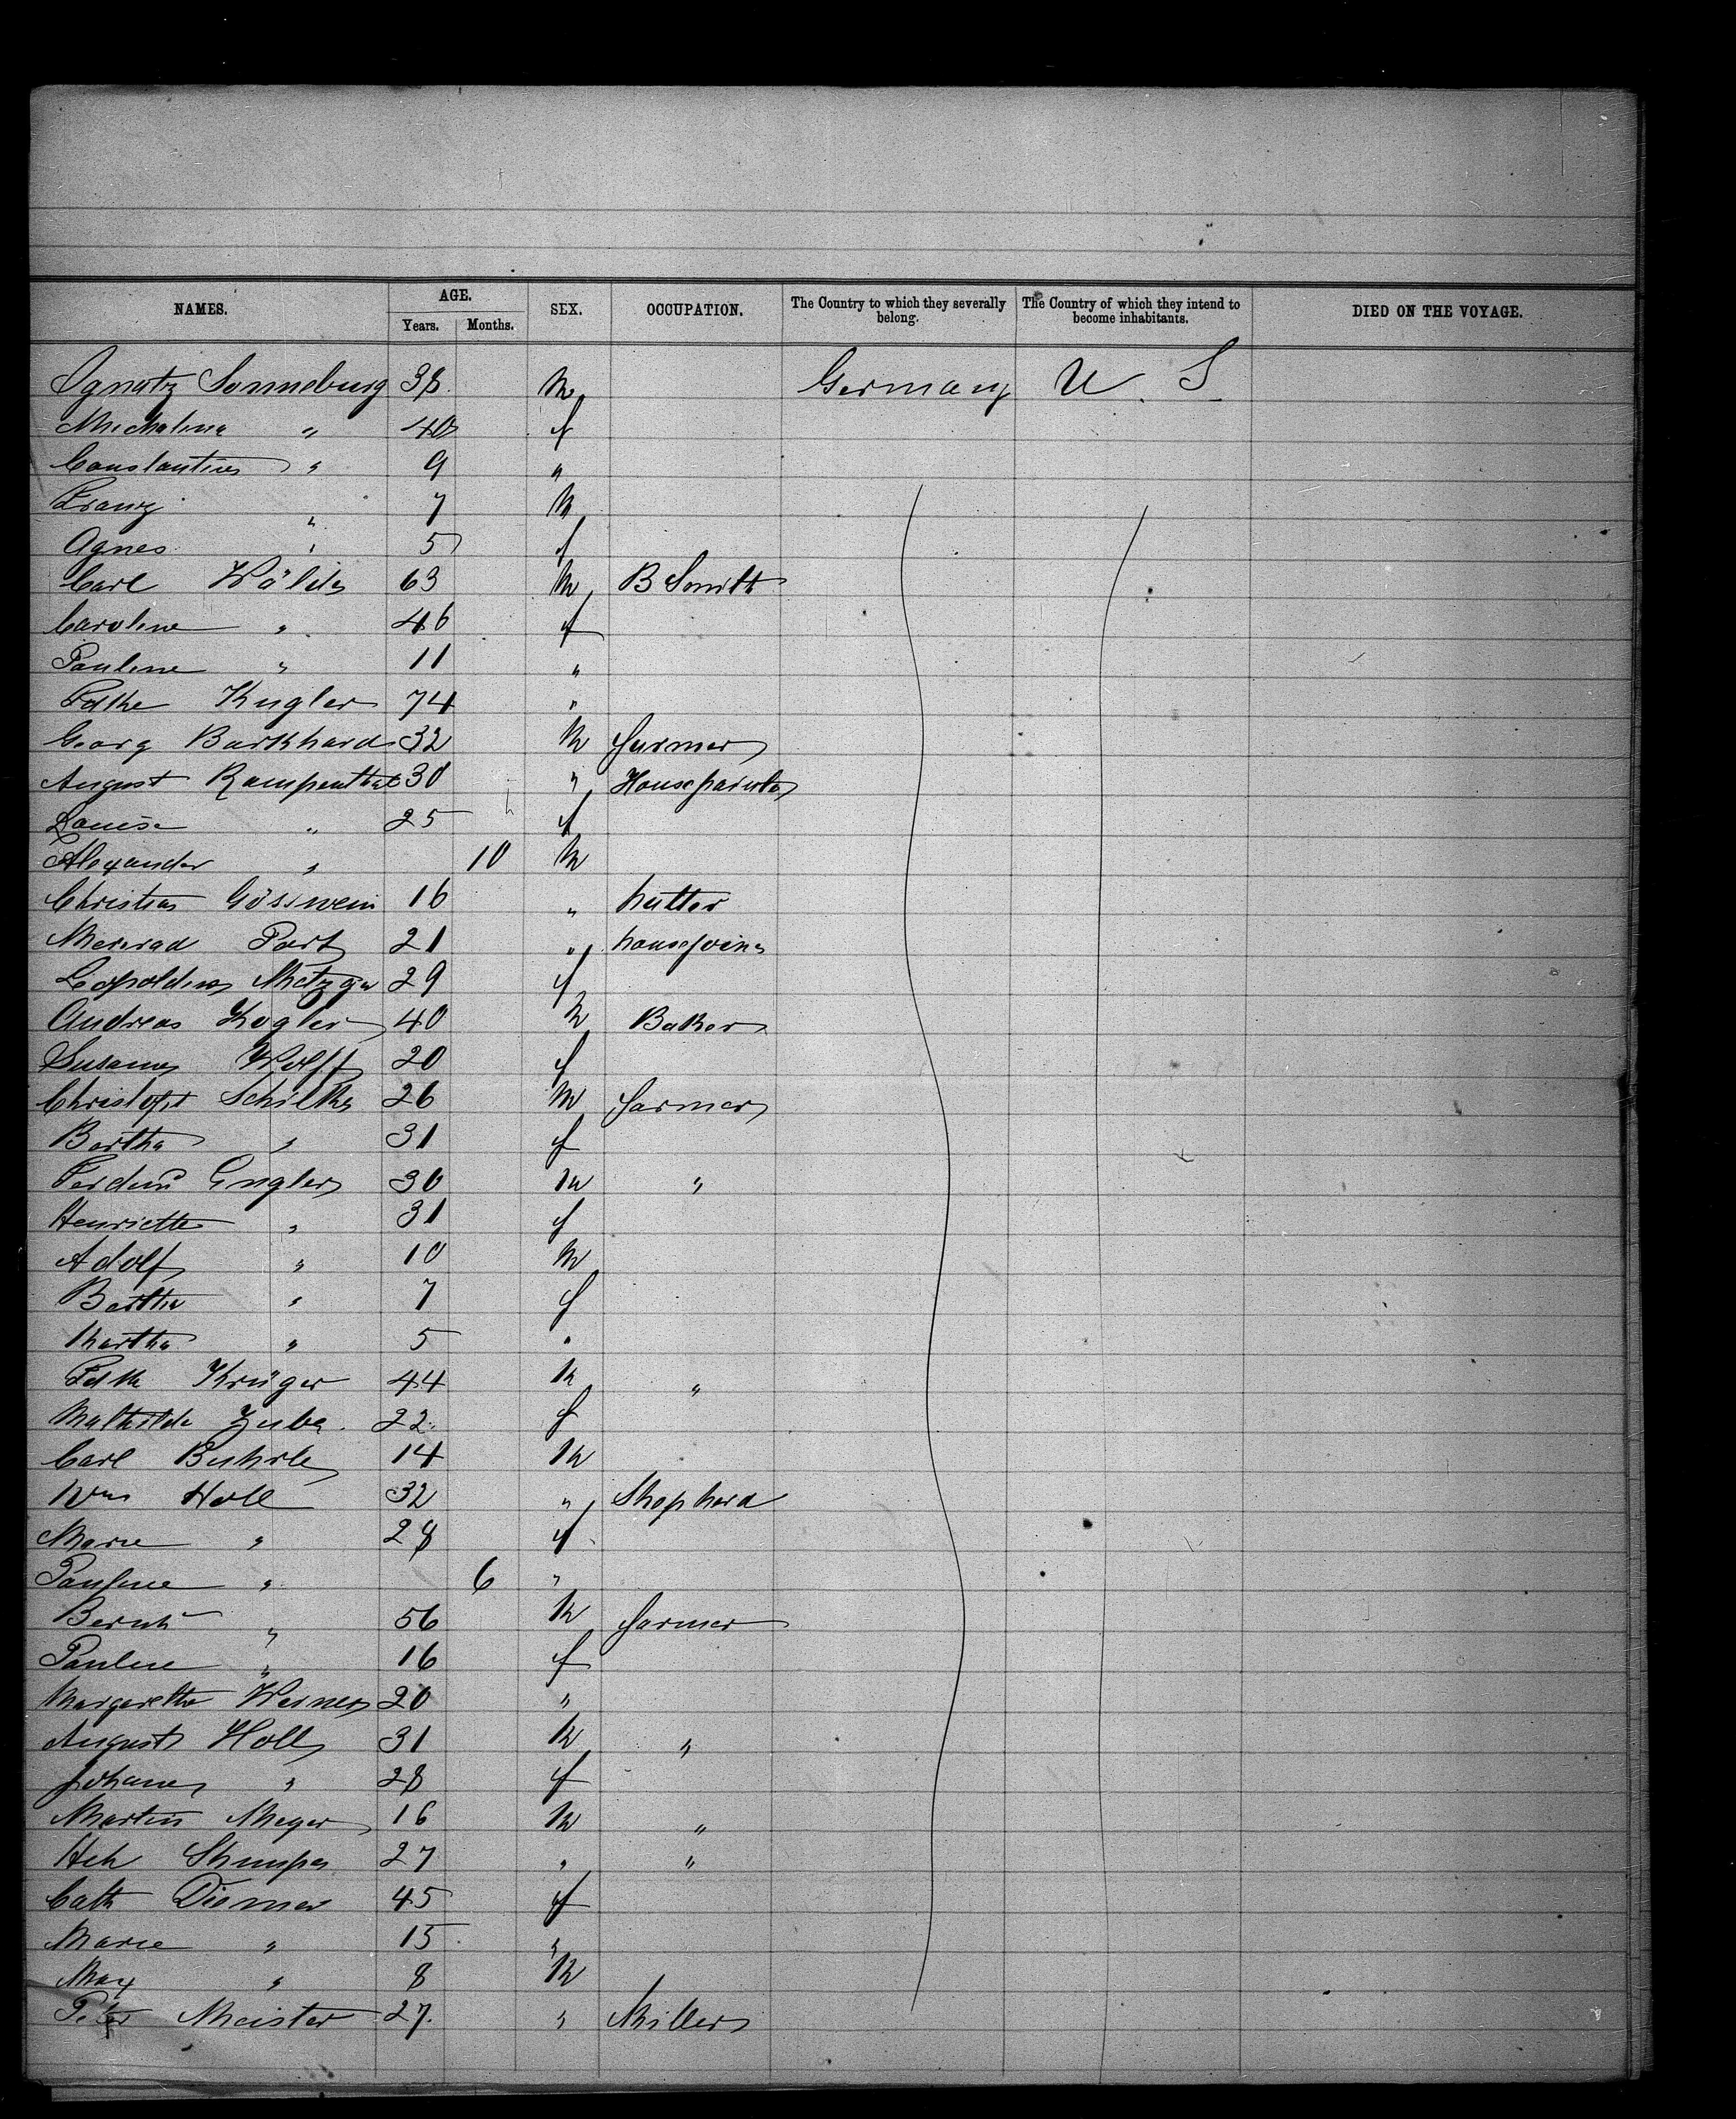 NAMES. AGE. SEX. OCCUPATION. The Country to which they severally belong. The Country of which they intend to become inhabitants. DIED ON THE VOYAGE.
Years. Months.
Ignatz Sonneburg 38 M Germany U. S.
Michalina " 40 f
Constantin " 9 "
Franz " 7 M
Agnes " 5 f
Carl 63 M B Smith
Caroline " 46 f
Pauline " 11 "
Kugler 74 "
Georg Burkhard 32 M farmer
August Rampenthal 30 " Housepainter
Louise " 25 f
Alexander " 10 M
Christian Gösswein 16 " hatter
Port 21 " housejoin
Leopoldine Metzger 29 f
Andreas Kogler 40 M Baker
Susanna Wolff 20 f
Christoph Schilke 26 M farmer
Bertha " 31 f
Ferdin Engler 30 M "
Henriette " 31 f
Adolf " 10 M
Bertha " 7 f
Martha " 5 "
Krüger 44 M "
Mathilde Zube 22 f
Carl Buhrle 14 M
Wm Holl 32 " Shepherd
Marie " 28 f
Pauline " 6 "
Bernh " 56 M farmer
Pauline " 16 f
Margaretha Werner 20 "
August Holl 31 M "
Johanna " 28 f
Martin Meyer 16 M "
Hch 27 " "
Cath Diemer 45 f
Marie " 15 "
Max " 8 M
Peter Meister 27 " Miller